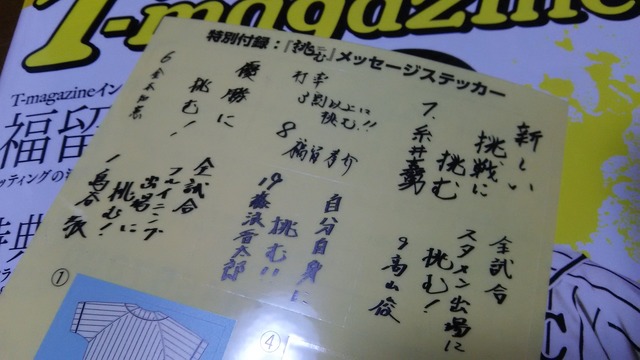 T-magazine
T-magazineイン
福留
ッティングの
特典
特別付録:『挑む』メッセージステッカー
新しい
挑戦に
挑む
7.糸井嘉男
打率
3割以上に
挑む!!
8 福留孝介
優勝に
挑む!
6 金本知憲
全試合
スタメン出場に
挑む!
9 高山俊
自分自身に
挑む!!
19 藤浪晋太郎
全試合
フルイニング
出場に
挑む!
1 鳥谷敬
①
④